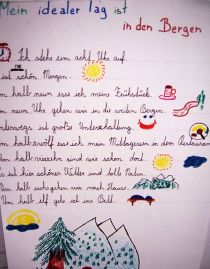 Mein idealer Tag ist
in den Bergen
Ich stehe um acht Uhr auf.
ist schön Morgen.
Um halb neun esse ich meine Frühstück.
neun Uhr gehen wir in die Bergen.
Unterwegs ist große Unterhaltung.
Um halb zwölf esse ich mein Mittagessen in dem Restaurant
halb sind wir schon dort.
ist hier schönes Wetter und tolle Natur.
Um halb sechs gehen wir nach Hause.
Um halb elf gehe ich ins Bett.